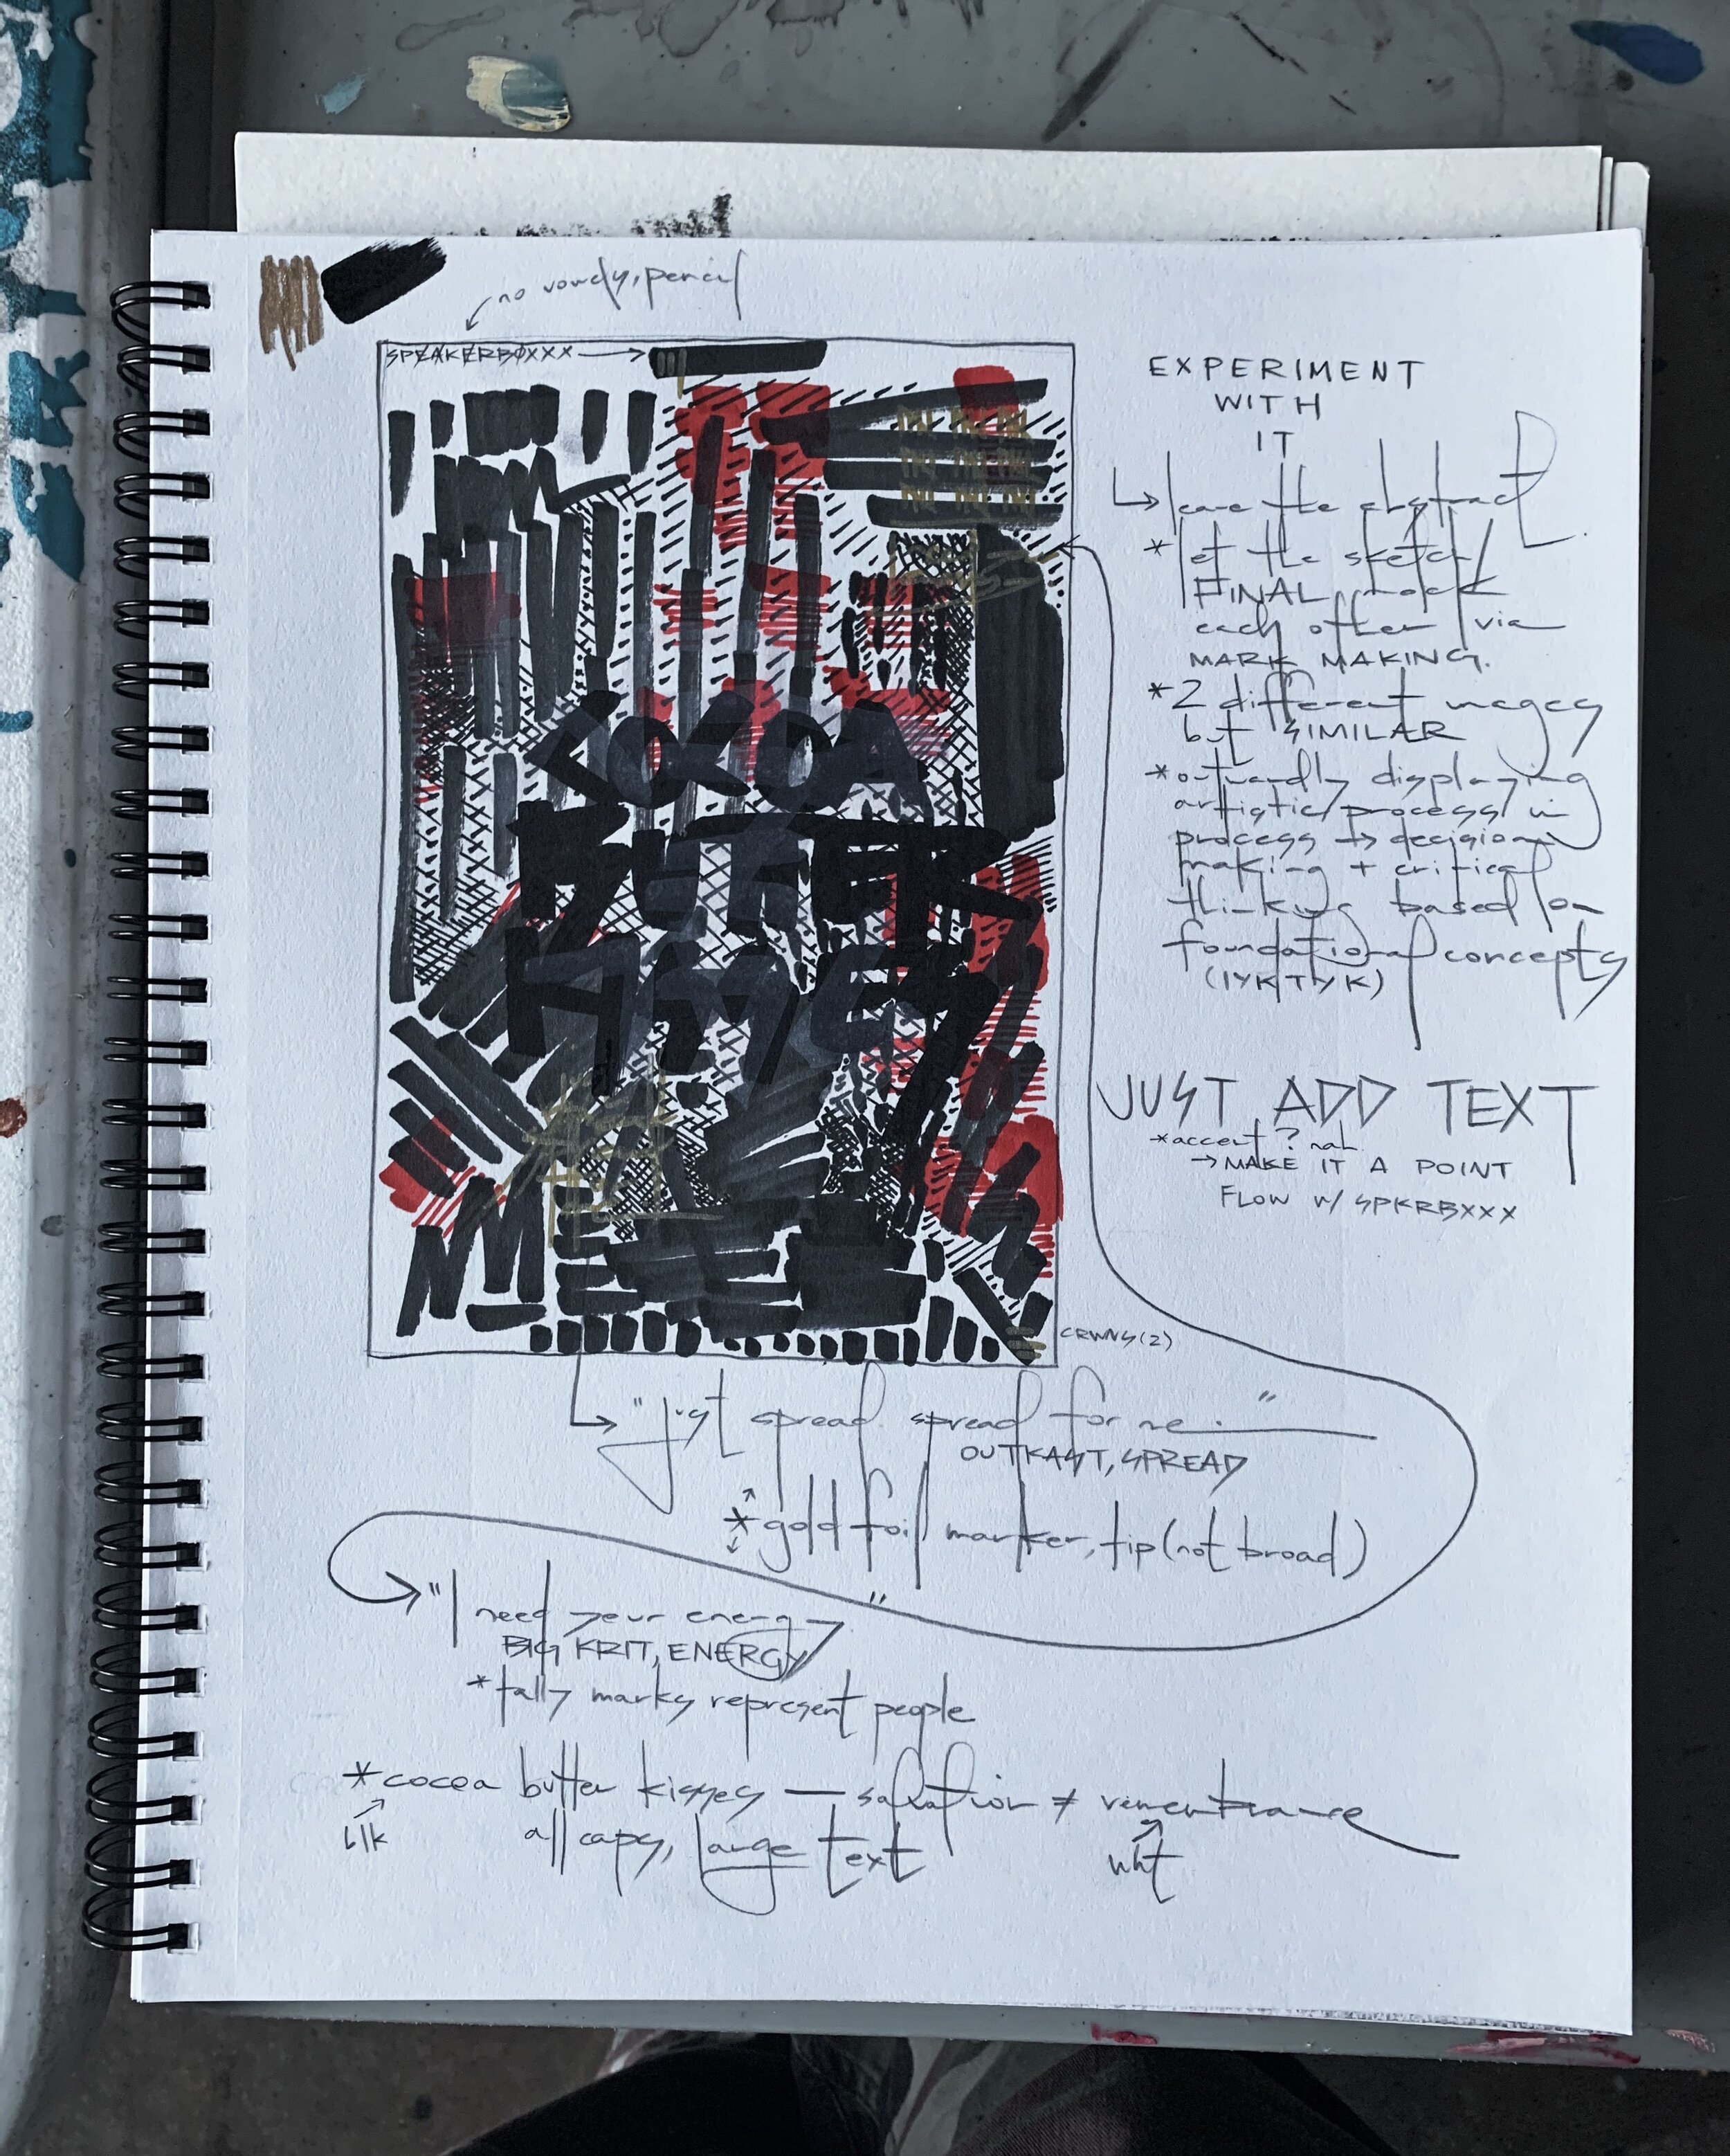 no rowdy, pencil
SPEAKERBOXXX
COCOA
BUTTER
KISSES
CRWNS(2)
EXPERIMENT
WITH
IT
leave the abstract.
*let the sketch/
FINAL mock
each other via
MARK MAKING.
*2 different images
but SIMILAR
*outwardly displaying
artistic process in
process → decision
making + critical
thinking based on
foundational concepts
(IYKTYK)
JUST ADD TEXT
*accent? nah
→ MAKE IT A POINT
FLOW W/ SPKRBXXX
"just spread. spread for me."
OUTKAST, SPREAD
*gold foil marker, tip (not broad)
"I need your energy"
BIG KRIT, ENERGY
*tally marks represent people
*cocoa butter kisses — salvation ≠ remembrance
blk
all caps, large text
wht